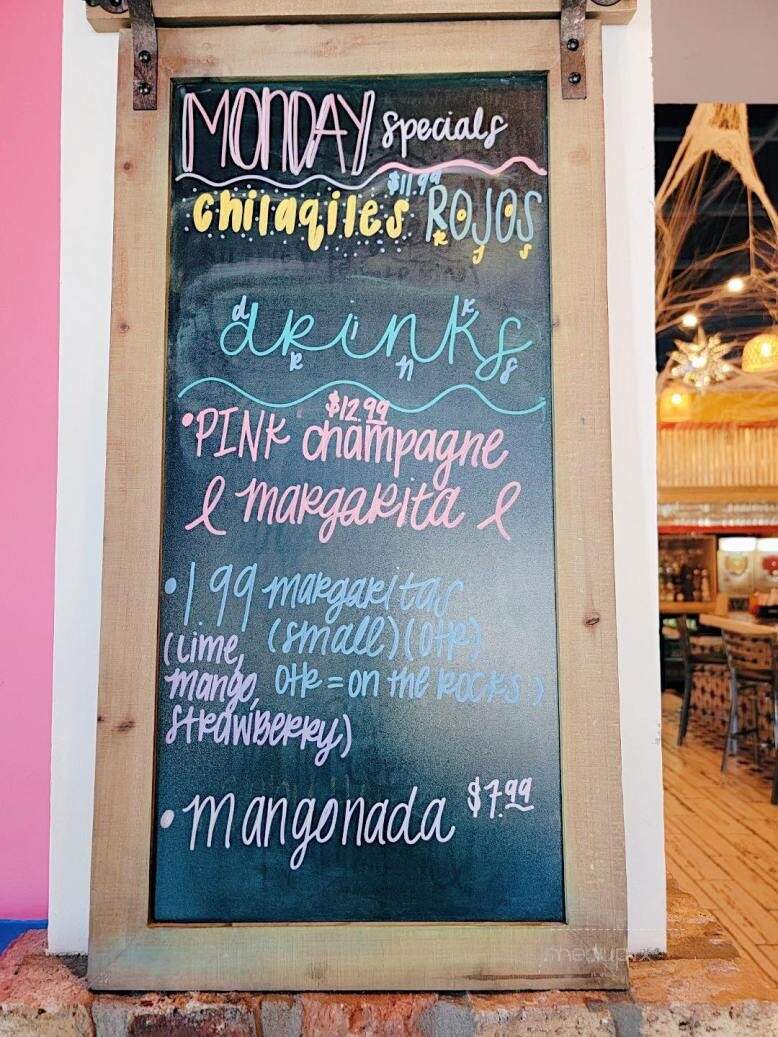 MONDAY specials
$11.99
chilaqiles ROJOS
drinks
$12.99
• PINK champagne
margarita
• 199 margaritas
(small) (OTR)
OTR = on the ROCKS)
(lime,
mango,
strawberry)
• mangonada $7.99